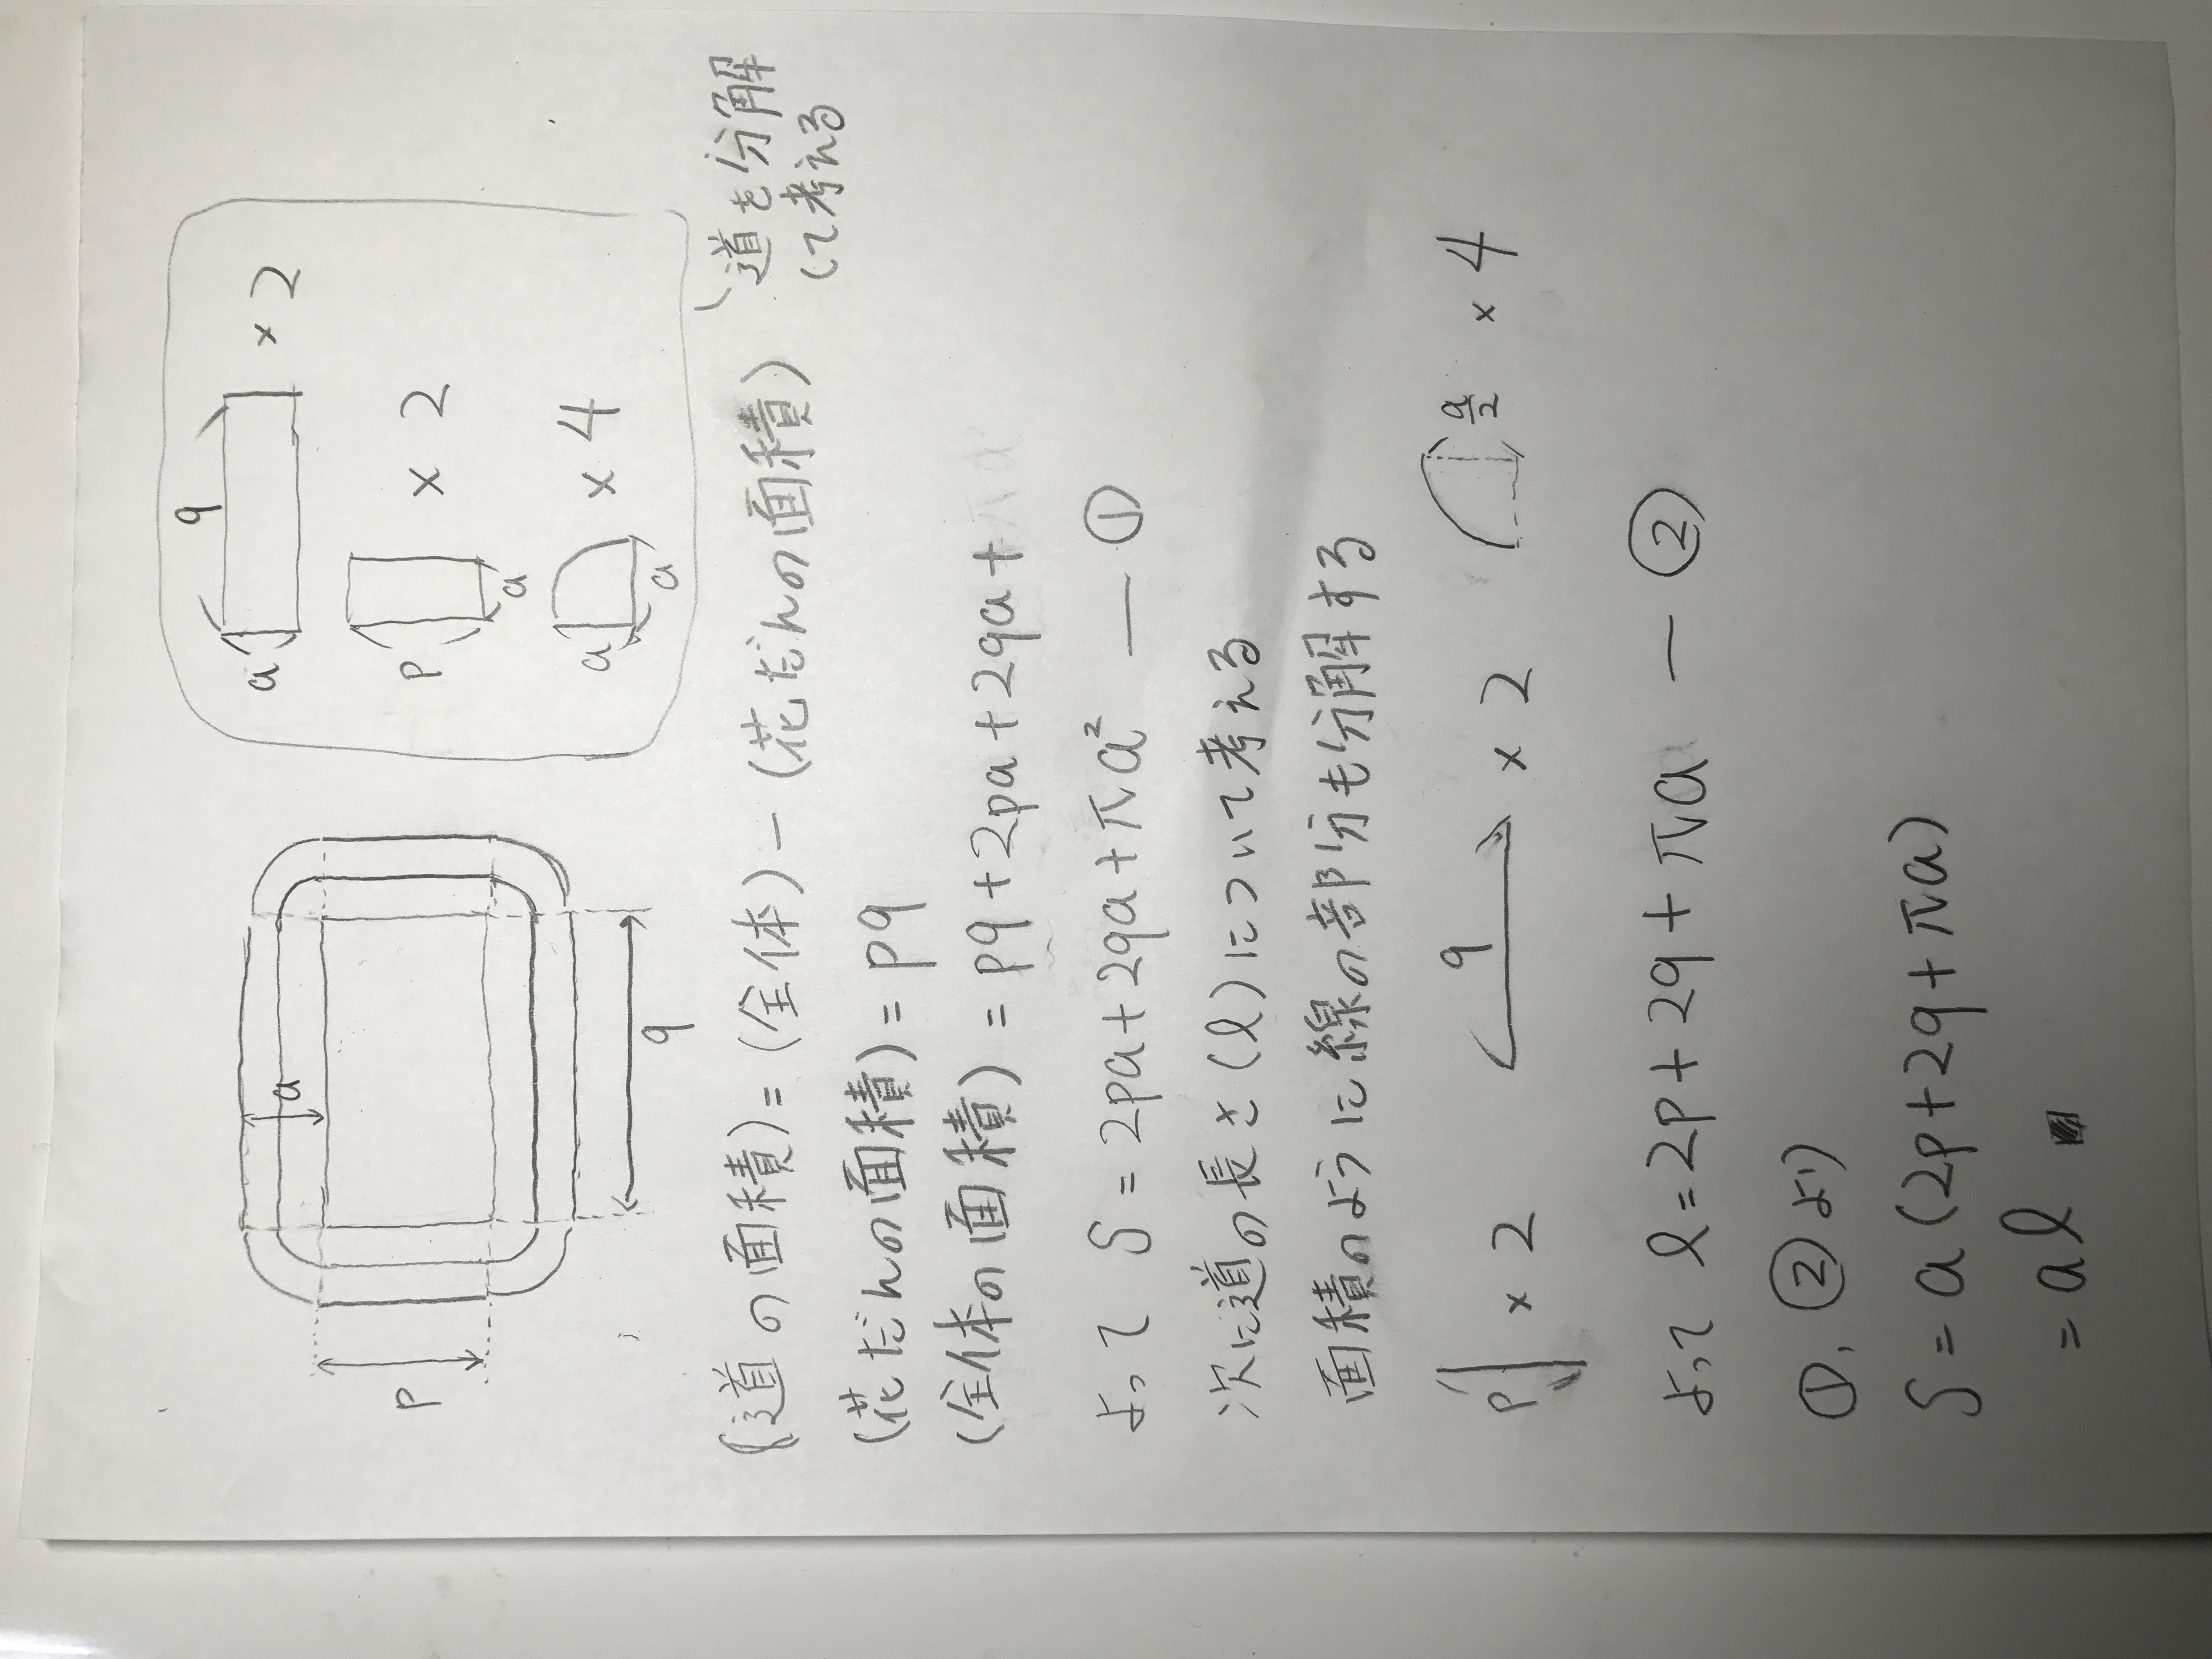 a
p
q
q
a × 2
p
a × 2
a
a × 4
道を分解
して考える
(道の面積)=(全体)-(花だんの面積)
(花だんの面積)=pq
(全体の面積)=pq+2pa+2qa+
よって S=2pa+2qa+πa² ― ①
次に道の長さ(ℓ)について考える
面積のように線の部分も分解する
p × 2 q × 2 a/2 × 4
よって ℓ=2p+2q+πa ― ②
①,②より
S=a(2p+2q+πa)
=aℓ